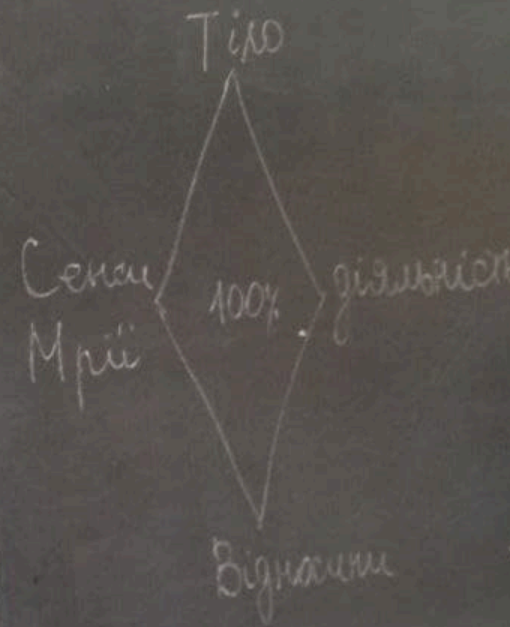 Тіло
Сенси
Мрії
100%
діяльніст
Відносини